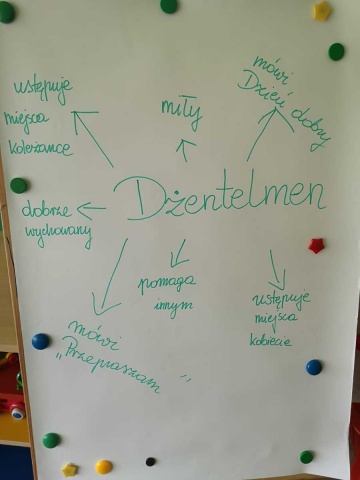 ustępuje
miejsca
koleżance
miły
mówi
Dzień dobry
Dżentelmen
dobrze
wychowany
pomaga
innym
ustępuje
miejsca
kobiecie
mówi
„Przepraszam”